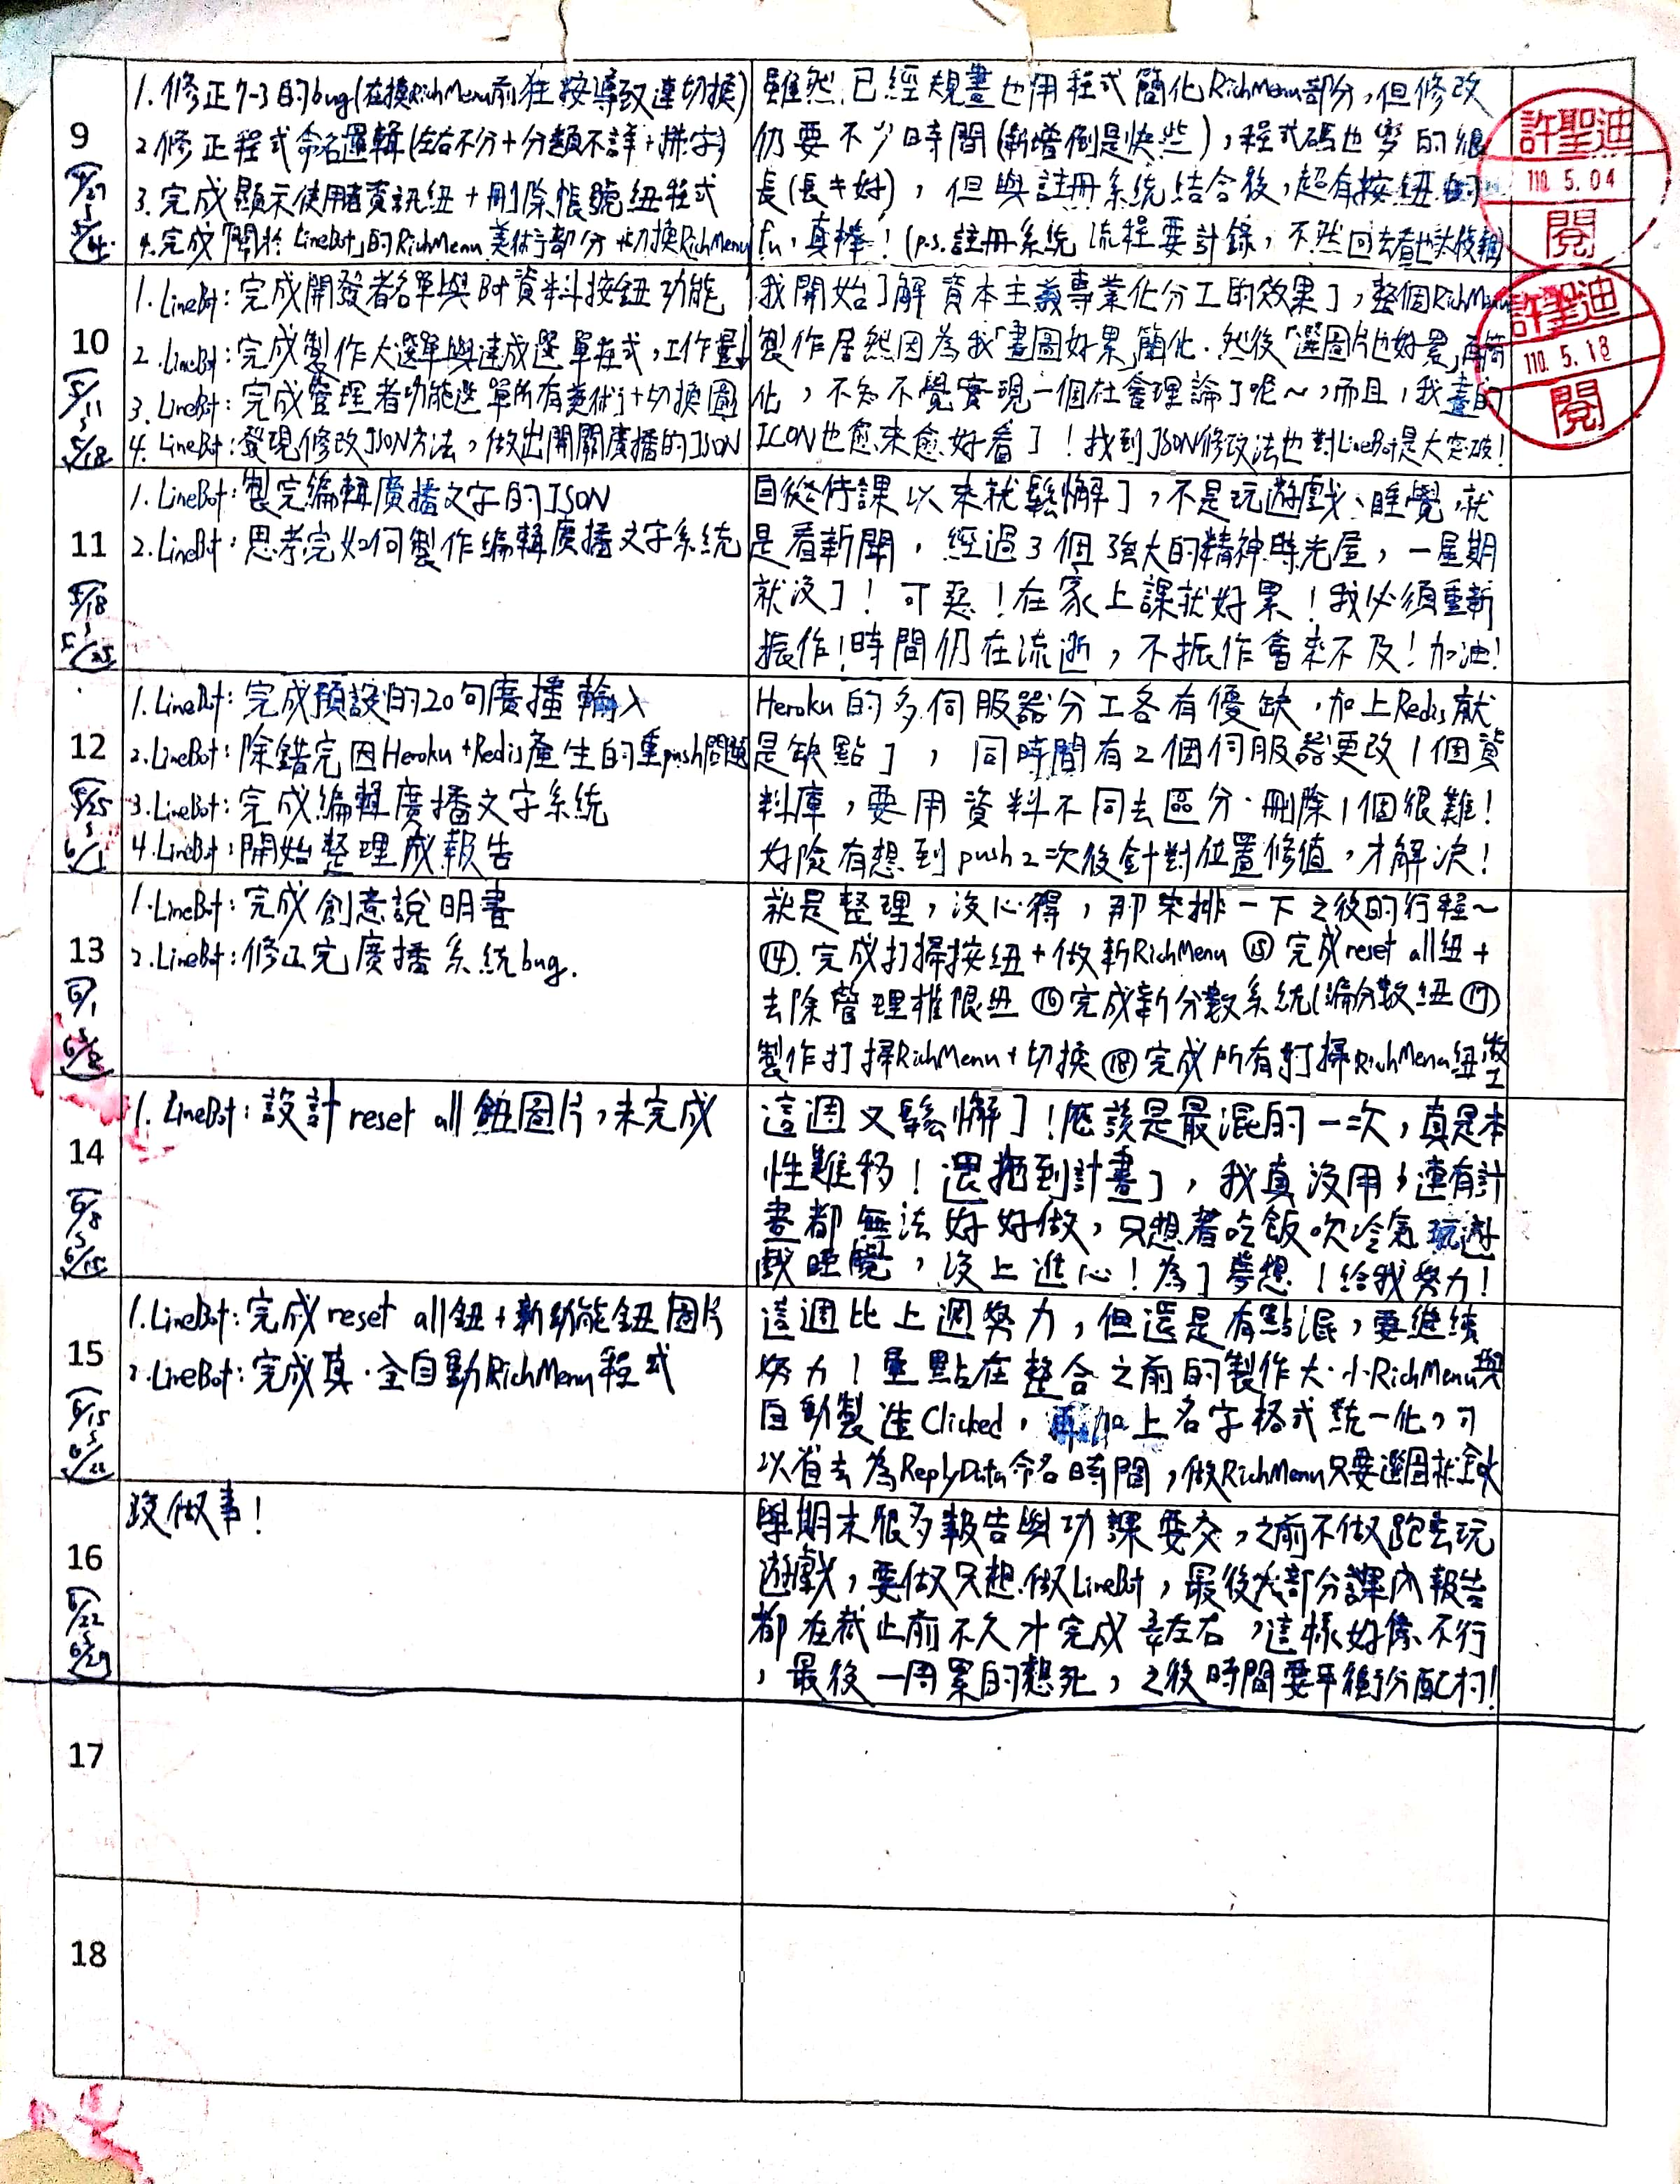 9
4/27
5/4
1. 修正7-3的bug(在換RichMenu前狂按導致連切換)
2. 修正程式命名邏輯(左右不分+分類不詳+拼字)
3. 完成顯示使用者資訊紐+刪除帳號紐程式
4. 完成「關於LineBot」的RichMenu美術部分+切換RichMenu
雖然已經規畫也用程式簡化RichMenu部分,但修改
仍要不少時間(新增倒是快些),程式碼也變的很
長(長牛好),但與註冊系統結合後,超有按紐的
fu,真棒!(p.s.註冊系統流程要計錄,不然回去看也
許聖迪
110. 5. 04
閱
10
5/11
5/18
1. LineBot:完成開發者名單與Bot資料按鈕功能
2. LineBot:完成製作大選單與速成選單程式,工作量↓
3. LineBot:完成管理者功能選單所有美術+切換圖
4. LineBot:發現修改JSON方法,做出開關廣播的JSON
我開始了解資本主義專業化分工的效果了,整個RichMenu
製作居然因為我「畫圖好累」簡化.然後「選圖片也好累」再簡
化,不知不覺實現一個社會理論了呢~,而且,我畫的
ICON也愈來愈好看了!找到JSON修改法也對LineBot是大突破!
許聖迪
110. 5. 18
閱
11
5/18
5/25
1. LineBot:製完編輯廣播文字的JSON
2. LineBot:思考完如何製作編輯廣播文字系統
自從停課以來就鬆懈了,不是玩遊戲、睡覺,就
是看新聞,經過3個強大的精神時光屋,一星期
就沒了!可惡!在家上課就好累!我必須重新
振作!時間仍在流逝,不振作會來不及!加油!
12
5/25
6/1
1. LineBot:完成預設的20句廣播輸入
2. LineBot:除錯完因Heroku+Redis產生的重push問題
3. LineBot:完成編輯廣播文字系統
4. LineBot:開始整理成報告
Heroku的多伺服器分工各有優缺,加上Redis就
是缺點了,同時間有2個伺服器更改1個資
料庫,要用資料不同去區分.刪除1個很難!
好險有想到push2次後針對位置修值,才解決!
13
6/1
6/8
1. LineBot:完成創意說明書
2. LineBot:修正完廣播系統bug.
就是整理,沒心得,那來排一下之後的行程~
⑭.完成打掃按紐+做新RichMenu ⑮完成reset all紐+
去除管理權限紐 ⑯完成新分數系統(編分數紐 ⑰
製作打掃RichMenu+切換 ⑱完成所有打掃RichMenu紐
14
6/8
6/15
1. LineBot:設計reset all鈕圖片,未完成
這週又鬆懈了!應該是最混的一次,真是本
性難移!還拖到計畫了,我真沒用,連有計
畫都無法好好做,只想著吃飯吹冷氣玩遊
戲睡覺,沒上進心!為了夢想!給我努力!
15
6/15
6/22
1. LineBot:完成reset all鈕+新功能鈕圖片
2. LineBot:完成真.全自動RichMenu程式
這週比上週努力,但還是有點混,要繼續
努力!重點在整合之前的製作大.小RichMenu與
自動製造Clicked,再加上名字格式統一化,可
以省去為ReplyData命名時間,做RichMenu只要選圖就
16
6/22
6/29
沒做事!
學期末很多報告與功課要交,之前不做跑去玩
遊戲,要做只想做LineBot,最後大部分課內報告
都在截止前不久才完成 左右,這樣好像不行
,最後一周累的想死,之後時間要平衡分配村!
17
18